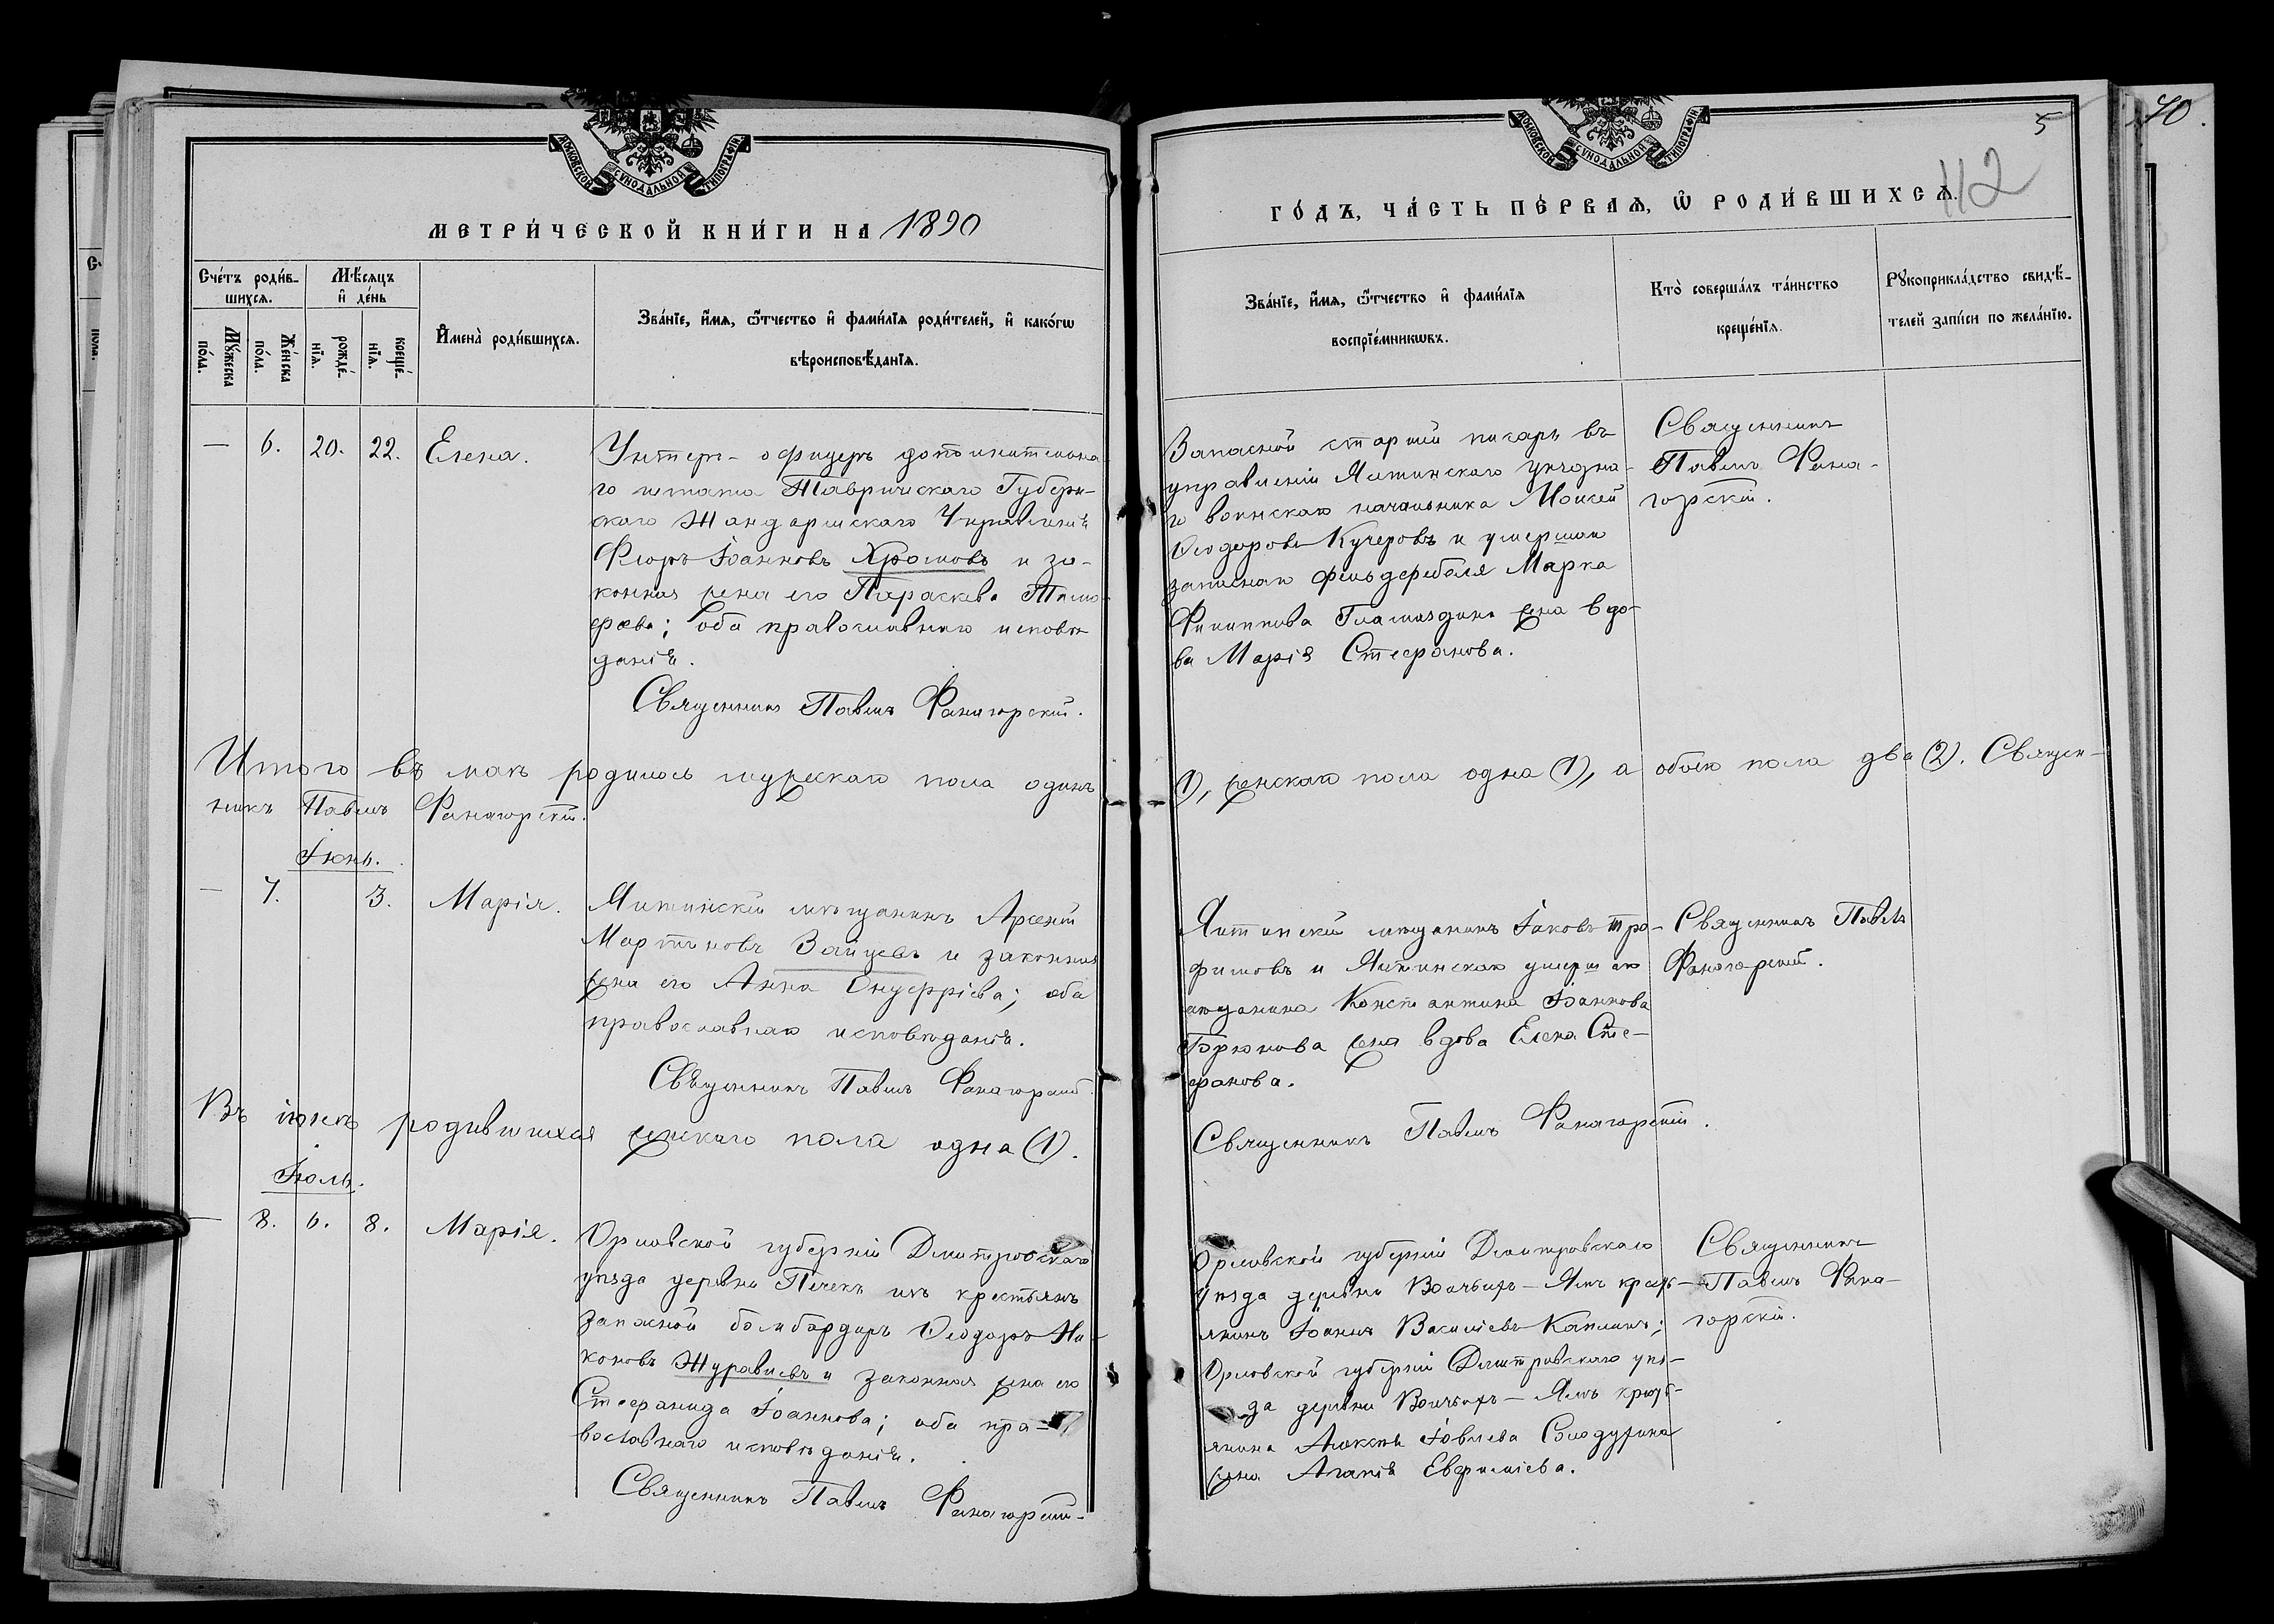 40.
5
112
МОСКОВСКОЙ СѴНОДАЛЬНОЙ ТИПОГРАФІИ
МЕТРИ́ЧЕСКОЙ КНИ́ГИ НА 1890
Сче́тъ роди́в-
шихсѧ.
Мѣ́сѧцъ
и҆ де́нь
Мꙋ́жеска
по́ла.
Же́нска
по́ла.
рожде́-
нїѧ.
креще́-
нїѧ.
И҆мена̀ роди́вшихсѧ.
Зва́нїе, и҆́мѧ, ѻ҆́тчество и҆ фами́лїѧ роди́телей, и҆ како́гѡ
вѣроисповѣ́данїѧ.
— 6. 20. 22. Елена.
Унтеръ-офицеръ дополнительна-
го штата Таврическаго Губерн-
скаго Жандармскаго Управленія
Флоръ Іоанновъ Хромовъ и за-
конная жена его Параскева Тимо-
феева; оба православнаго исповѣ-
данія.
Священникъ Павелъ Фанагорскій.
Итого въ маѣ родилось мужескаго пола одинъ
никъ Павелъ Фанагорскій.
Іюнь.
— 7. 3. Марія.
Ялтинскій мѣщанинъ Арсеній
Мартиновъ Зайцевъ и законная
жена его Анна Онуфріева; оба
православнаго исповѣданія.
Священникъ Павелъ Фанагорскій.
Въ іюнѣ родившихся женскаго пола одна (1).
Іюль.
— 8. 6. 8. Марія.
Орловской губерніи Дмитровскаго
уѣзда деревни Печекъ изъ крестьянъ
запасной бомбардиръ Ѳеодоръ Ни-
коновъ Журавлевъ и законная жена его
Стефанида Іоаннова; оба пра-
вославнаго исповѣданія.
Священникъ Павелъ Фанагорскій.
МОСКОВСКОЙ СѴНОДАЛЬНОЙ ТИПОГРАФІИ
ГО́ДЪ, ЧА́СТЬ ПЕ́РВАѦ, Ѡ҆ РОДИ́ВШИХСѦ.
Зва́нїе, и҆́мѧ, ѻ҆́тчество и҆ фами́лїѧ
воспрїе́мникѡвъ.
Кто̀ соверша́лъ та́инство
креще́нїѧ.
Рꙋкоприкла́дство свидѣ́-
телей за́писи по жела́нїю.
Запасной старшій писарь въ
управленіи Ялтинскаго уѣздна-
го воинскаго начальника Моисей
Ѳеодоровъ Кучеровъ и умершаго
запаснаго фельдфебеля Марка
Филиппова жена вдо-
ва Марія Стефанова.
Священникъ
Павелъ Фана-
горскій.
(1), женскаго пола одна (1), а обоего пола два (2). Священ-
Ялтинскій мѣщанинъ Іаковъ Тро-
фимовъ и Ялтинскаго умершаго
мѣщанина Константина Іоаннова
Брюнова жена вдова Елена Сте-
фанова.
Священникъ Павелъ
Фанагорскій.
Священникъ Павелъ Фанагорскій.
Орловской губерніи Дмитровскаго
уѣзда деревни Волчьихъ-Ямъ крест-
янинъ Іоаннъ Василіевъ Каплинъ;
Орловской губерніи Дмитровскаго уѣз-
да деревни Волчьихъ-Ямъ крест-
янина Алексѣя Іовлева
жена Агапія Евфиміева.
Священникъ
Павелъ Фана-
горскій.